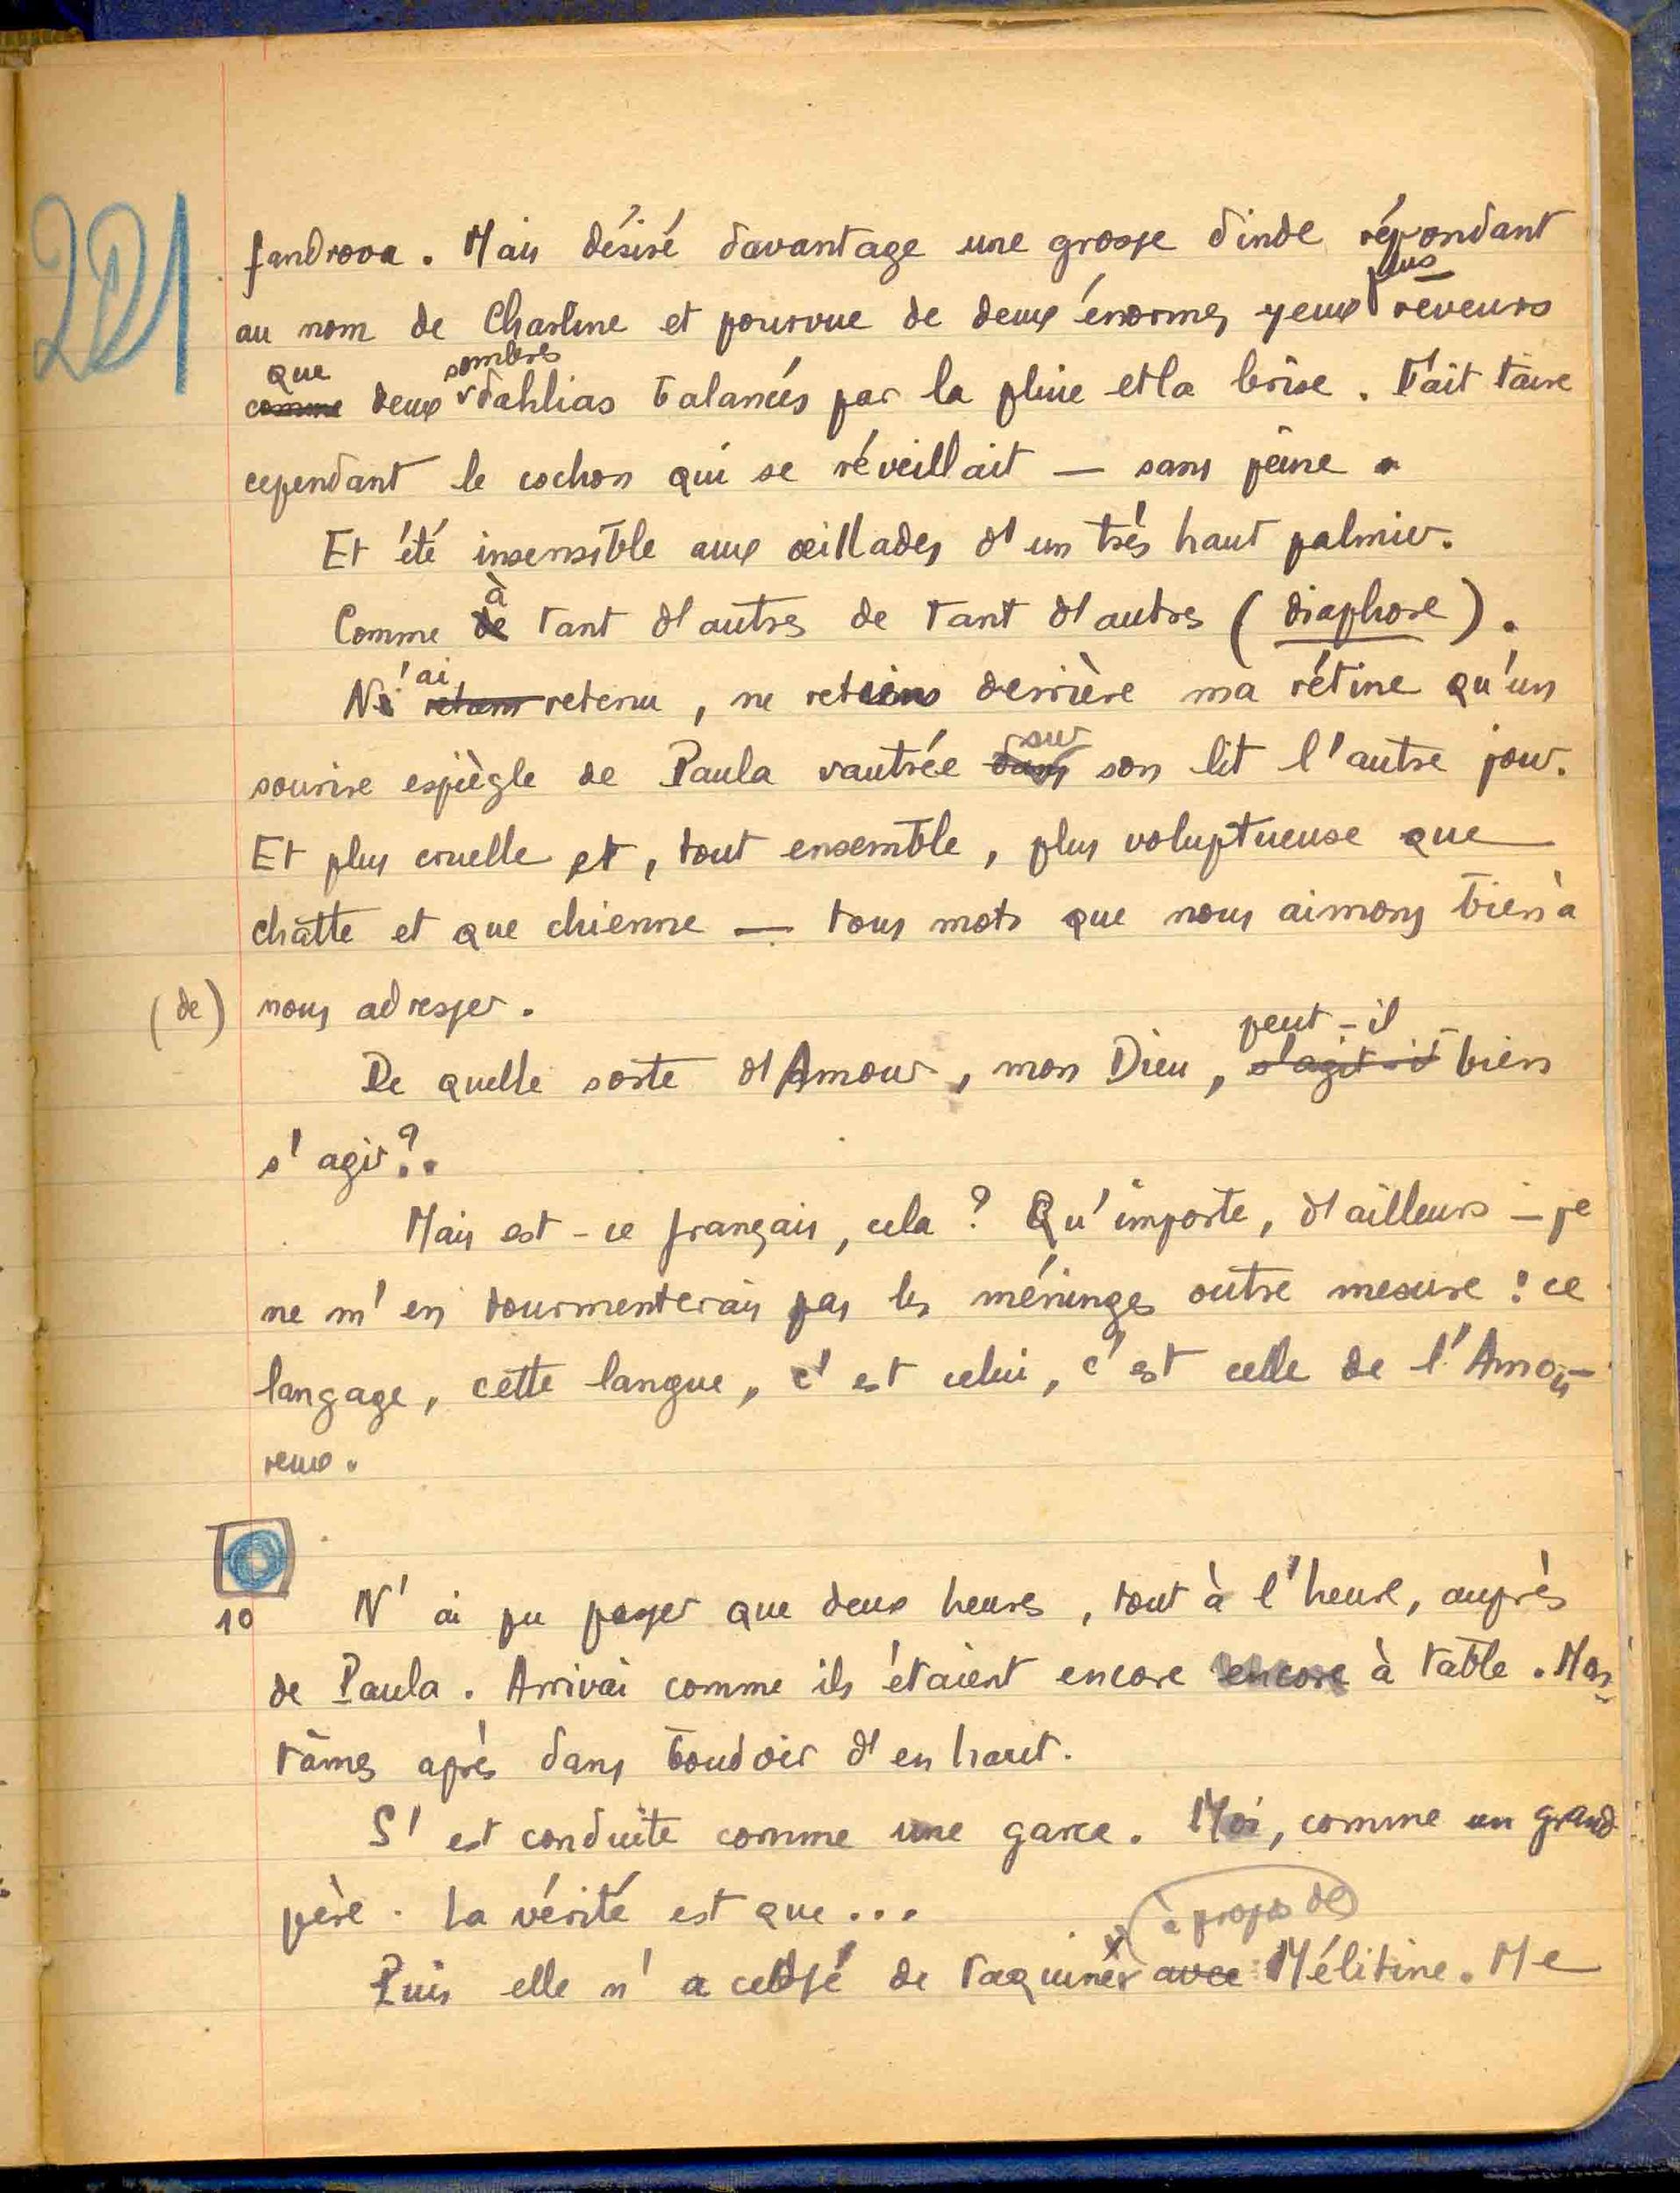 221
fandrova. Mais désiré davantage une grosse dinde répondant
plus
au nom de Charline et pourvue de deux énormes yeux rêveurs
que sombres
comme deux dahlias balancés par la pluie et la brise. Fait taire
cependant le cochon qui se réveillait — sans peine.
Et été insensible aux œillades d'un très haut palmier.
à
Comme de tant d'autres de tant d'autres (diaphore).
N'ai retenu, ne retiens derrière ma rétine qu'un
sur
sourire espiègle de Paula vautrée dans son lit l'autre jour.
Et plus cruelle et, tout ensemble, plus voluptueuse que
chatte et que chienne — tous mots que nous aimons bien à
(de) nous adresser.
peut-il
De quelle sorte d'Amour, mon Dieu, s'agit-il bien
s'agir?.
Mais est-ce français, cela? Qu'importe, d'ailleurs — je
ne m'en tourmenterais pas les méninges outre mesure: ce
langage, cette langue, c'est celui, c'est celle de l'Amou-
reux.
10 N'ai pu passer que deux heures, tout à l'heure, auprès
de Paula. Arrivai comme ils étaient encore encore à table. Mon-
tâmes après dans boudoir d'en haut.
S'est conduite comme une garce. Moi, comme un grand
père. La vérité est que...
à propos de
Puis elle n'a cessé de taquiner avec Mélitine. Me